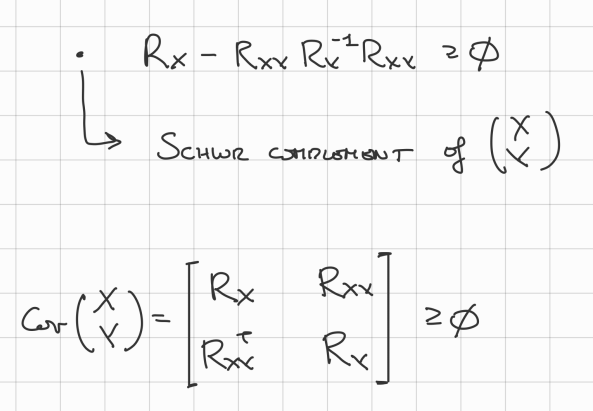 • R_X - R_XY R_Y^-1 R_XY ≥ 0
↳ SCHUR COMPLEMENT of (X Y)
Cov (X Y) = [R_X R_XY; R_XY^T R_Y] ≥ 0